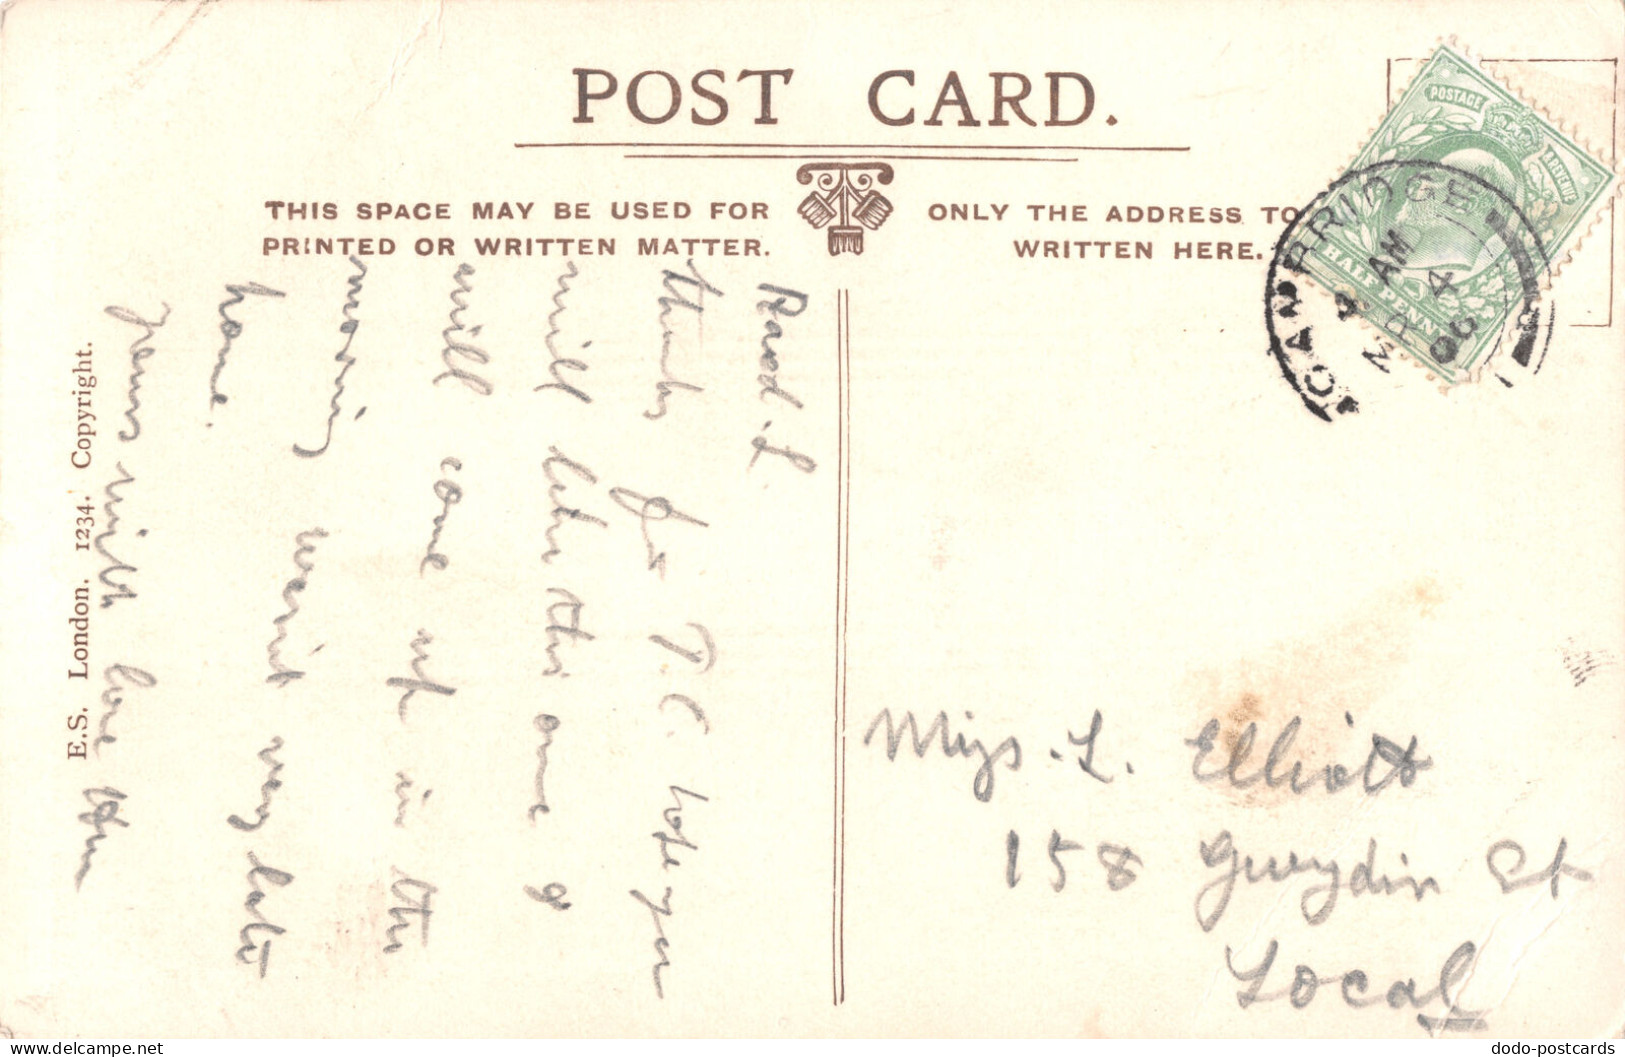 POST CARD.
THIS SPACE MAY BE USED FOR
PRINTED OR WRITTEN MATTER.
ONLY THE ADDRESS TO
WRITTEN HERE.
POSTAGE
& REVENUE
HALF PENNY
CAMBRIDGE
AM
MR 4
06
E.S. London. 1234. Copyright.
L.
thanks for P.C. hope you
will like this one I
will come up in the
morning wasnt very late
home.
yours with love
Miss. L. Elliott
158 Gwydir St
Local
dodo-postcards